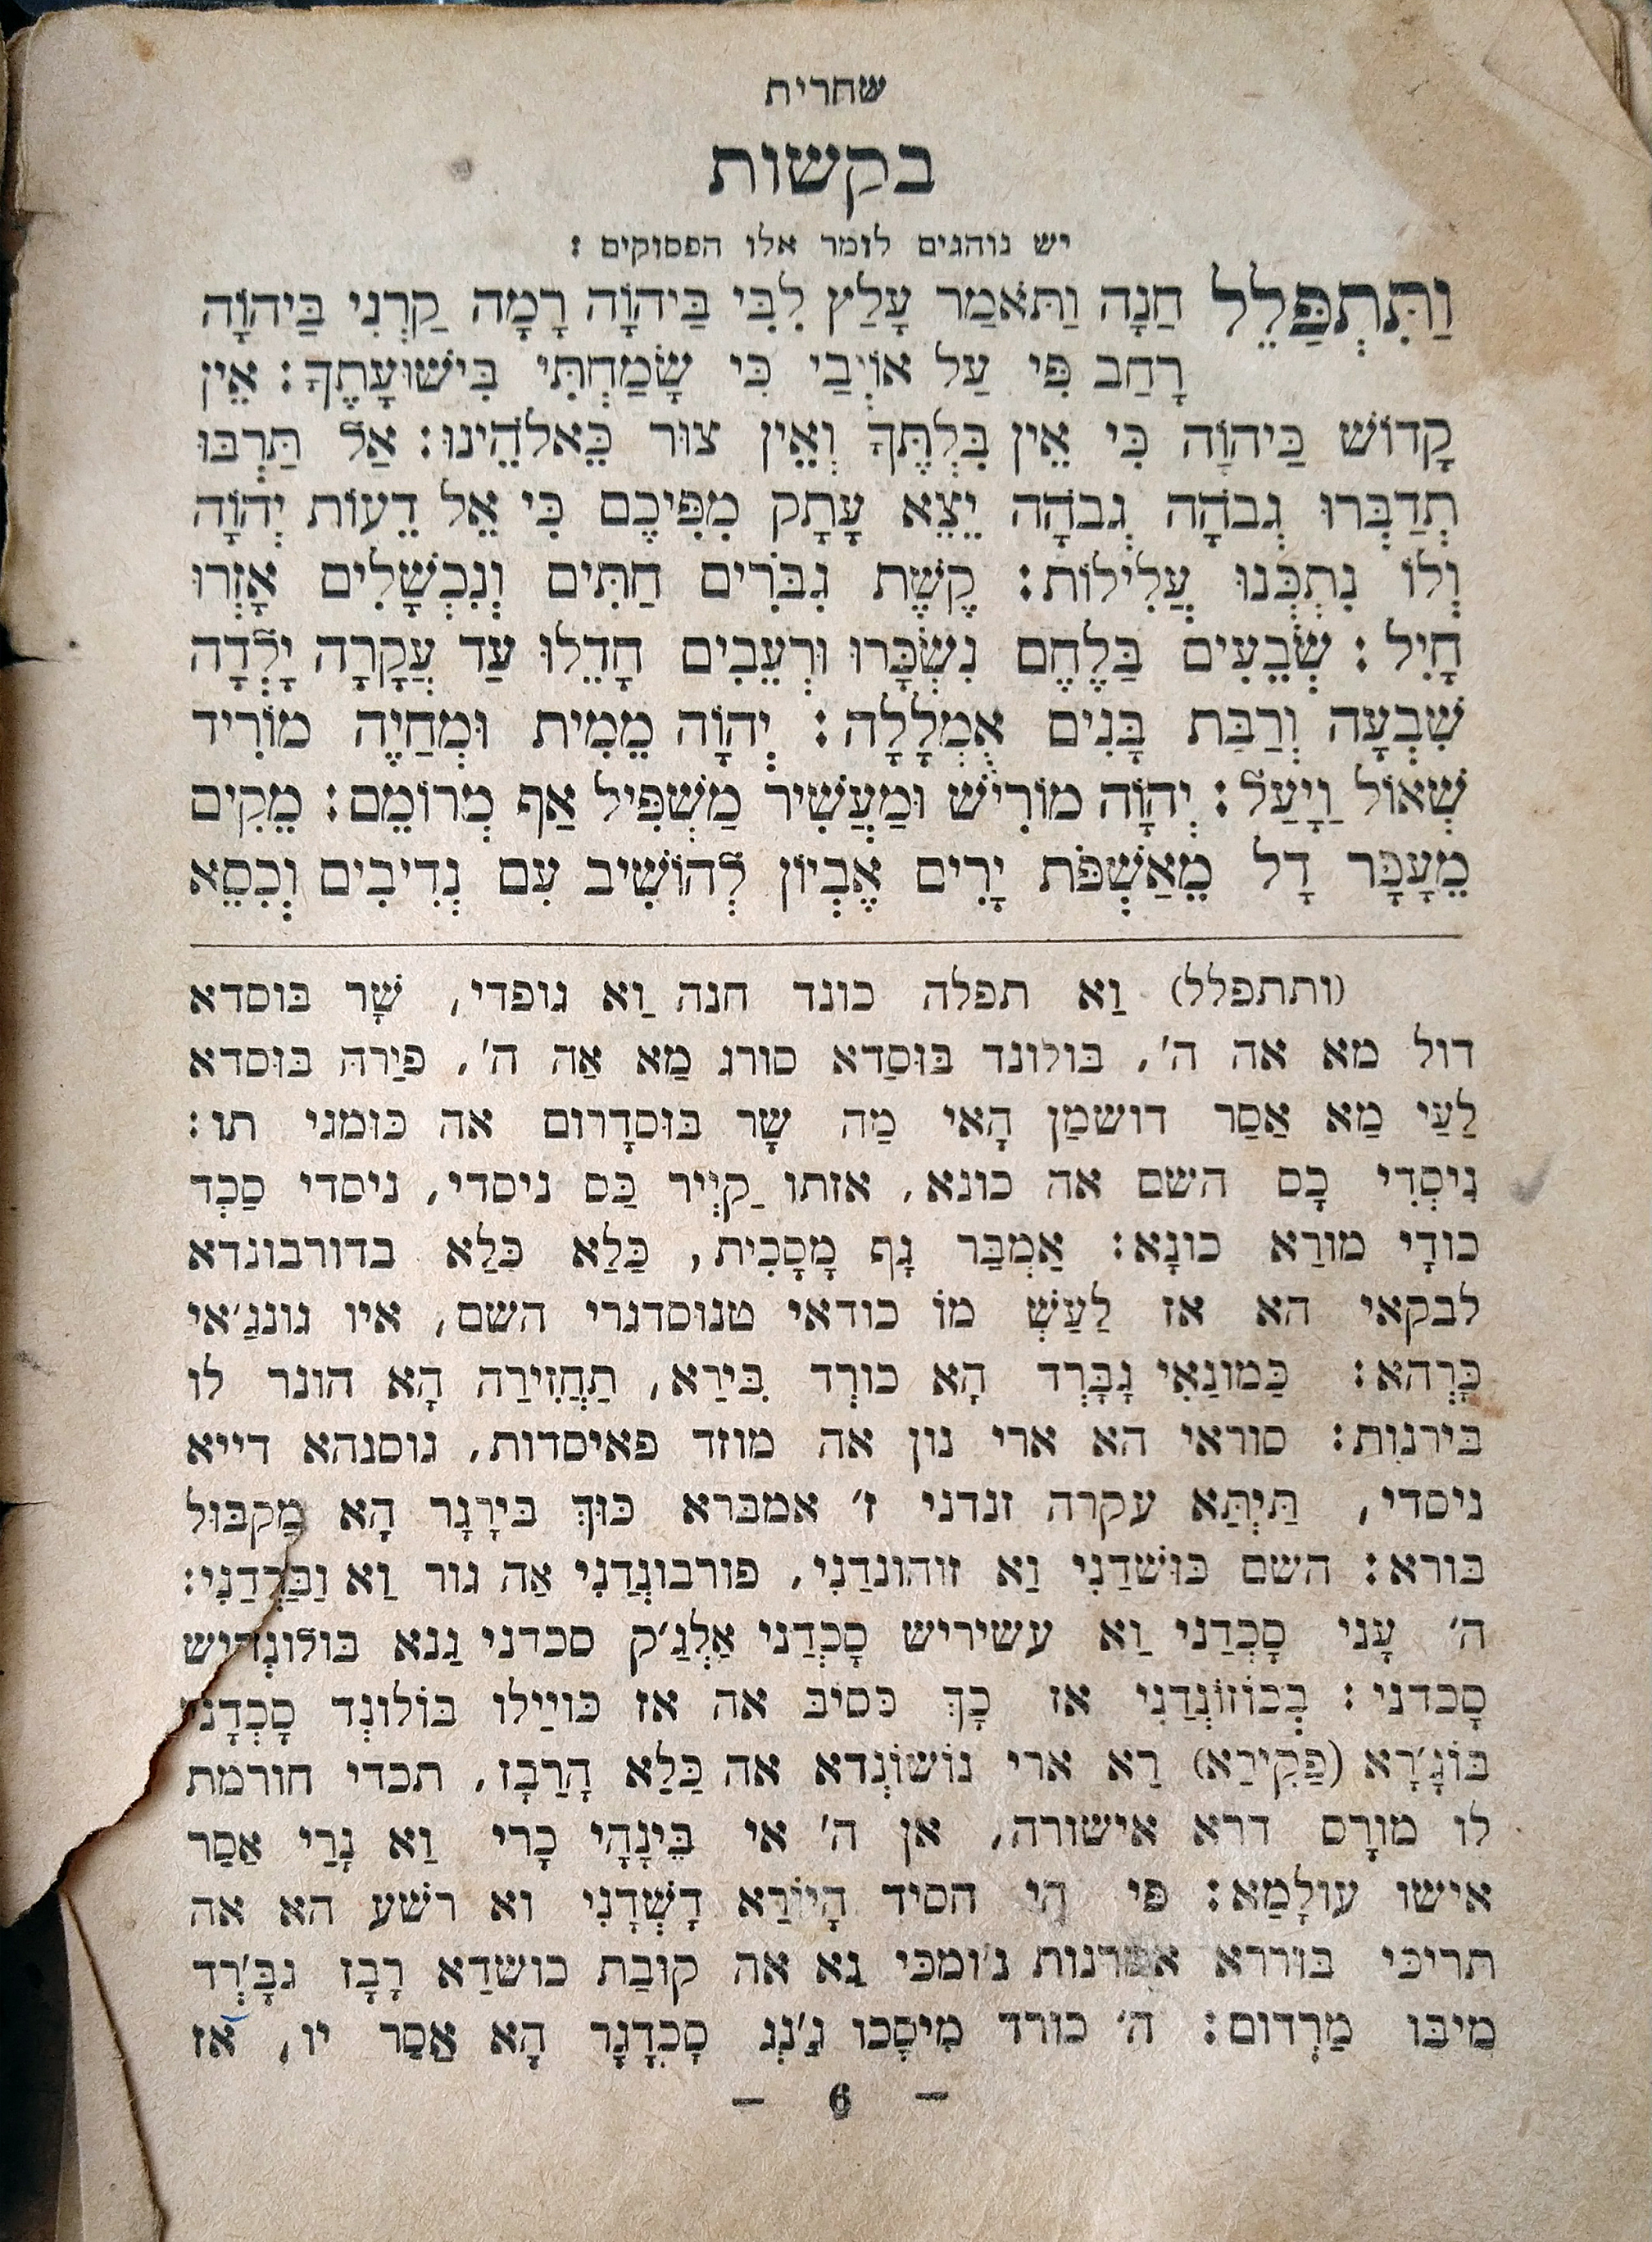 שחרית
בקשות
יש נוהגים לומר אלו הפסוקים :
וַתִּתְפַּלֵל חַנָּה וַתֹּאמַר עָלַץ לִבִּי בַּיהוָֹה רָמָה קַרְנִי בַּיהוָֹה
רָחַב פִּי עַל אוֹיְבַי כִּי שָׂמַחְתִּי בִּישׁוּעָתֶךָ: אֵין
קָדוֹשׁ כַּיהוָֹה כִּי אֵין בִּלְתֶּךָ וְאֵין צוּר כֵּאלֹהֵינוּ: אַל תַּרְבּוּ
תְדַבְּרוּ גְבֹהָה גְבֹהָה יֵצֵא עָתָק מִפִּיכֶם כִּי אֵל דֵעוֹת יְהוָֹה
וְלוֹ נִתְכְּנוּ עֲלִילוֹת: קֶשֶׁת גִבֹּרִים חַתִּים וְנִכְשָׁלִים אָזְרוּ
חָיִל: שְׂבֵעִים בַּלֶחֶם נִשְׂכָּרוּ וּרְעֵבִים חָדֵלוּ עַד עֲקָרָה יָלְדָה
שִׁבְעָה וְרַבַּת בָּנִים אֻמְלָלָה: יְהוָֹה מֵמִית וּמְחַיֶּה מוֹרִיד
שְׁאוֹל וַיָּעַל: יְהוָֹה מוֹרִישׁ וּמַעֲשִׁיר מַשְׁפִּיל אַף מְרוֹמֵם: מֵקִים
מֵעָפָּר דָל מֵאַשְׁפֹּת יָרִים אֶבְיוֹן לְהוֹשִׁיב עִם נְדִיבִים וְכִסֵּא
(ותתפלל) וַא תפלה כונד חנה וַא גופדי, שָׁר בּוסדא
דול מא אה ה׳, בולונד בּוּסַדא סורג מַא אַה ה׳, פיַרהּ בּוּסדא
לַעַי מַא אַסַר דושמַן הָאי מַה שָר בּוּסדָרום אה כּומגי תו:
נִיסְדִי כָס השם אה כונא, אזתו קַיְיר כַּס ניסדי, ניסדי סַכְד
כודָי מורַא כונָא: אַמְבַּר גָף מָסָכִית, כַּלַא כִּלַא בדורבונדא
לבקאי הא אז לַעַשְׁ מוֹ כודאי טנוּסדגרי השם, איו גונגַ׳אי
כָּרְהא: כַּמוּנַאִי גָבָּרְד הָא כורְד בִּירַא, תַחֲזִירַה הָא הונר לו
בירנות: סוראי הא ארי נון אה מוזד פאיסדות, גוסנהא דייא
ניסדי, תַּיְתַּא עקרה זנדני ז׳ אמברא כּוּךְ בּירָגָר הָא מַקבּוּל
בּוּרא: השם כּוּשׁדַנִי וַא זוהונדַנִי, פורבונְדַנִי אַה גור וַא
ה׳ עָני סָכְדַני וַא עשיריש סָכְדַני אַלְגַ׳ק סכדני גַנא
סָכדני: בְּכוֹזוֹנְדַנִי אז כָךְ כּסיבּ אה אז כּוּיַילו בּוֹלונְד סָכְדָנִי
בּוֹגָ׳רָא (פַקִירַא) רַא ארי נוֹשׁוֹנְדא אה כַּלַא הָרַבָז, תכדי חורמת
לו מורָס דרא אישורה, אן ה׳ אי בֵּינָהָי כָרי וַא נָרַי אַסַר
אישו עולָמַא: פּי הי חסיד הָיוֹרַא דָשְׁדָנִי וא רשׁע הא אה
תריכּי בּוֹררא ג׳ומכּי גַא אה קוּבַת כושדַא רָבָז גבָּ׳רְד
מיבּוּ מַרְדום: ה׳ כורד מִיסָכו גַ׳נְג סָכְדָנָר הָא אַסַר יו, אז
— 6 —